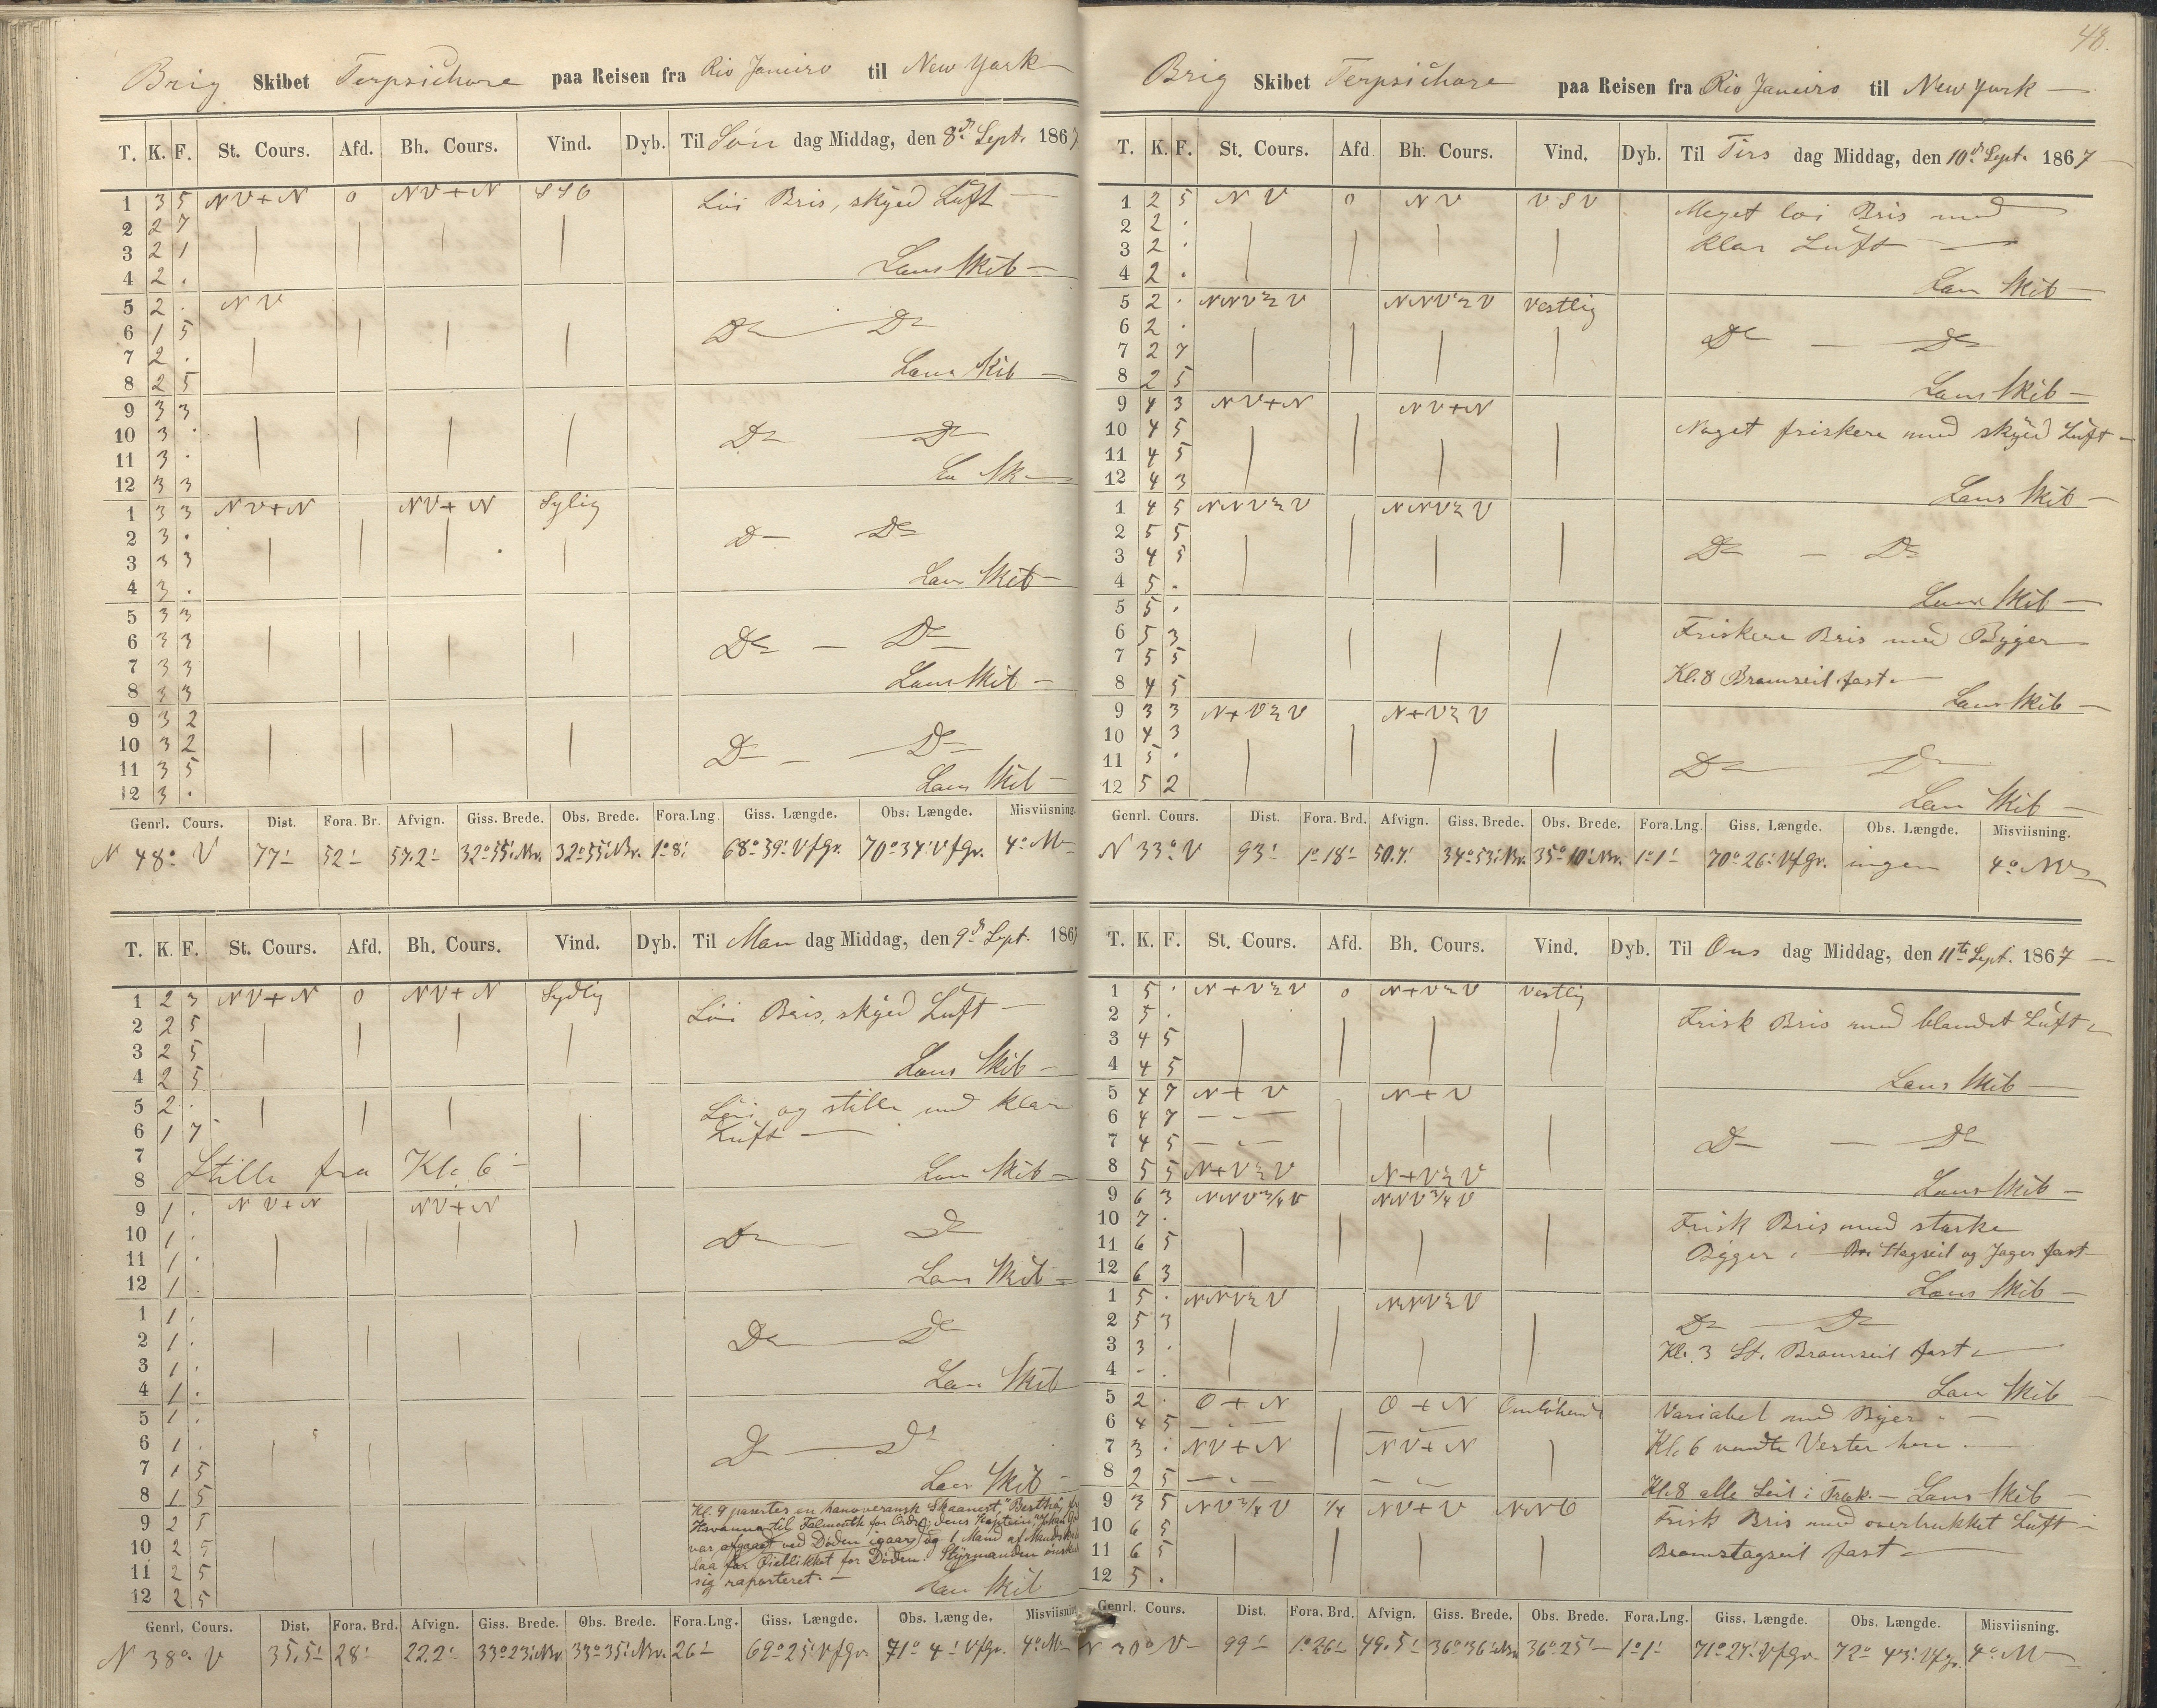 Brig Skibet Terpsichore paa Reisen fra Rio Janeiro til New York
T. K. F. St. Cours. Afd. Bh. Cours. Vind. Dyb. Til Søn dag Middag, den 8de Sept. 1867
1 3 5 NV+N 0 NV+N SSO Löi Bris, skyed Luft —
2 2 7
3 2 1
4 2 . Læns Skib —
5 2 . NV
6 1 5 Do — Do
7 2 .
8 2 5 Læns Skib —
9 3 3
10 3 . Do — Do
11 3 .
12 3 3 Læ Sk —
1 3 3 NV+N NV+N Sylig
2 3 . Do — Do
3 3 3
4 3 . Læns Skib —
5 3 3
6 3 3 Do — Do
7 3 3
8 3 3 Læns Skib —
9 3 2
10 3 2 Do — Do
11 3 5
12 3 . Læns Skib —
Genrl. Cours. Dist. Fora. Br. Afvign. Giss. Brede. Obs. Brede. Fora.Lng. Giss. Længde. Obs. Længde. Misviisning.
N 48° V 77' 52' 57.2' 32°55' Nr. 32°55' Nr. 1°8' 68°39' V f Gr. 70°34' V f Gr. 4° NV
T. K. F. St. Cours. Afd. Bh. Cours. Vind. Dyb. Til Man dag Middag, den 9de Sept. 1867
1 2 3 NV+N 0 NV+N Sydlig Löi Bris, skyed Luft —
2 2 5
3 2 5
4 2 5 Læns Skib —
5 2 . Löi og stille med klar
6 1 7 Luft —
7
8 Stille fra Kl. 6 Læns Skib —
9 1 . NV+N NV+N
10 1 . Do — Do
11 1 .
12 1 . Læns Skib —
1 1 .
2 1 . Do — Do
3 1 .
4 1 . Læns Skib
5 1 .
6 1 . Do — Do
7 1 5
8 1 5 Læns Skib —
Kl. 9 paserter en hanoveransk Skaanert, "Bertha", fr
9 2 5 Havanna til Falmouth for Ordre; dens Kaptein, Johan
10 2 5 var afgaaet ved Døden igaar, og 1 Mand af Mandsk
11 2 5 laa for Øieblikket for Døden. Styrmanden ønsk
12 2 5 sig raporteret. — Læns Skib
Genrl. Cours. Dist. Fora. Brd. Afvign. Giss. Brede. Obs. Brede. Fora.Lng. Giss. Længde. Obs. Længde. Misviisning
N 38° V 35,5' 28' 22.2' 33°23' Nr. 33°35' Nr. 26' 69°25' V f Gr. 71° 4' V f Gr. 4° NV
48.
Brig Skibet Terpsichore paa Reisen fra Rio Janeiro til New York —
T. K. F. St. Cours. Afd. Bh. Cours. Vind. Dyb. Til Tirs dag Middag, den 10de Sept. 1867
1 2 5 NV 0 NV VSV Meget löi Bris med
2 2 .
3 2 . klar Luft —
4 2 . Læns Skib —
5 2 . NNV½V NNV½V Vestlig
6 2 . Do — Do
7 2 7
8 2 5 Læns Skib —
9 4 3 NV+N NV+N
10 4 5 Noget friskere med skyed Luft —
11 4 5
12 4 3 Læns Skib —
1 4 5 NNV½V NNV½V
2 5 5
3 4 5 Do — Do
4 5 .
5 5 . Læns Skib —
6 5 3 Friskere Bris med Byger
7 5 5
8 4 5 Kl. 8 Bramseil fast. —
9 3 3 N+V½V N+V½V Læns Skib —
10 4 3
11 5 . Do — Do
12 5 2 Læns Skib —
Genrl. Cours. Dist. Fora. Brd. Afvign. Giss. Brede. Obs. Brede. Fora.Lng. Giss. Længde. Obs. Længde. Misviisning.
N 33° V 93' 1°18' 50.7' 34°53' Nr. 35°10' Nr. 1°1' 70°26' V f Gr. ingen 4° NV
T. K. F. St. Cours. Afd. Bh. Cours. Vind. Dyb. Til Ons dag Middag, den 11te Sept. 1867 —
1 5 . N+V½V 0 N+V½V Vestlig
2 5 . Frisk Bris med blandet Luft
3 4 5
4 4 5 Læns Skib —
5 4 7 N+V N+V
6 4 7 — " —
7 4 5 — " — Do — Do
8 5 5 N+V½V N+V½V
9 6 3 NNV¾V NNV¾V Læns Skib —
10 7 . Frisk Bris med stærke
11 6 5 Bÿger. — Br. Stagseil og Jager fast
12 6 3
1 5 . NNV½V NNV½V Læns Skib —
2 5 3 Do — Do
3 3 . Kl. 3 St. Bramseil fast. —
4 - . Læns Skib
5 2 . O+N O+N Omløbende Variabel med Byer. —
6 4 5 — " —
7 3 . NV+N NV+N Kl. 6 vendte Vester over. —
8 2 5 — " — — " — Kl. 8 alle Seil i Træk. — Læns Skib —
9 3 5 NV¾V ¼ NV+V NNO Frisk Bris med overtrukket Luft —
10 6 5
11 6 5 Bramstagseil fast —
12 5 .
Genrl. Cours. Dist. Fora. Brd. Afvign. Giss. Brede. Obs. Brede. Fora.Lng. Giss. Længde. Obs. Længde. Misviisning.
N 30° V 99' 1°26' 49.5' 36°36' Nr. 36°25' 1°1' 71°27' V f Gr. 72° 43' V f Gr. 4° NV